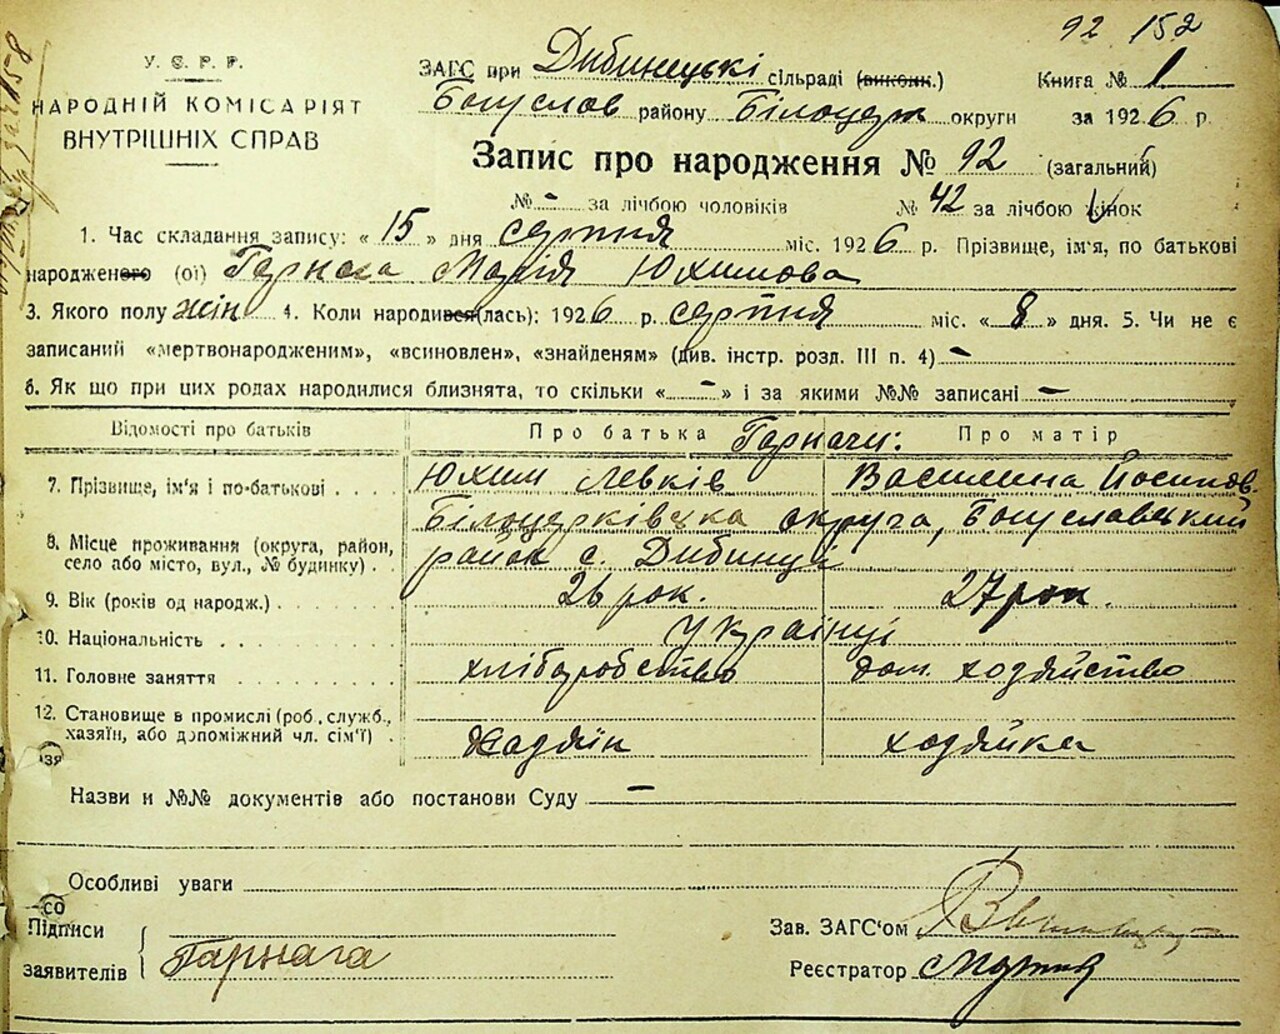 92 152
У. С. Р. Р.
НАРОДНІЙ КОМІСАРІЯТ
ВНУТРІШНІХ СПРАВ
ЗАГС при Дибинецькі сільраді (виконк.) Книга № 1
Богуслов району Білоцерк округи за 1926 р.
Запис про народження № 92 (загальний)
№ - за лічбою чоловіків № 42 за лічбою жінок
1. Час складання запису: « 15 » дня серпня міс. 1926 р. Прізвище, ім'я, по батькові
народженого (ої) Гарнага Марія Юхимова
3. Якого полу жін 4. Коли народився(лась): 1926 р. серпня міс. « 8 » дня. 5. Чи не є
записаний «мертвонародженим», «всиновлен», «знайденям» (див. інстр. розд. III п. 4) -
6. Як що при цих родах народилися близнята, то скільки « - » і за якими №№ записані -
Відомості про батьків Про батька Гарнаги: Про матір
7. Прізвище, ім'я і по-батькові Юхим Левків Василина Йосипов.
Білоцерківська округа, Богуславський
8. Місце проживання (округа, район,
село або місто, вул., № будинку) район с. Дибинці
9. Вік (років од народж.) 26 рок. 27 рок.
10. Національність Українці
11. Головне заняття хліборобство дом. хозяйство
12. Становище в промислі (роб., служб.,
хазяїн, або допоміжний чл. сім'ї) Хазяїн хозяйка
Назви и №№ документів або постанови Суду -
Особливі уваги
Підписи
заявителів Гарнага
Зав. ЗАГС'ом
Реєстратор